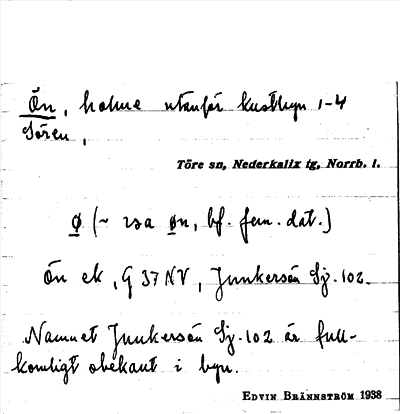 Ön, holme utanför kustbyn 1-4
Sören,
Töre sn, Nederkalix tg, Norrb. l.
ø (~ røa øn, bf. fem. dat.)
Ön ek, G 37 NV, Junkersön Sj. 102.
Namnet Junkersön Sj. 102 är full-
komligt obekant i byn.
EDVIN BRÄNNSTRÖM 1938